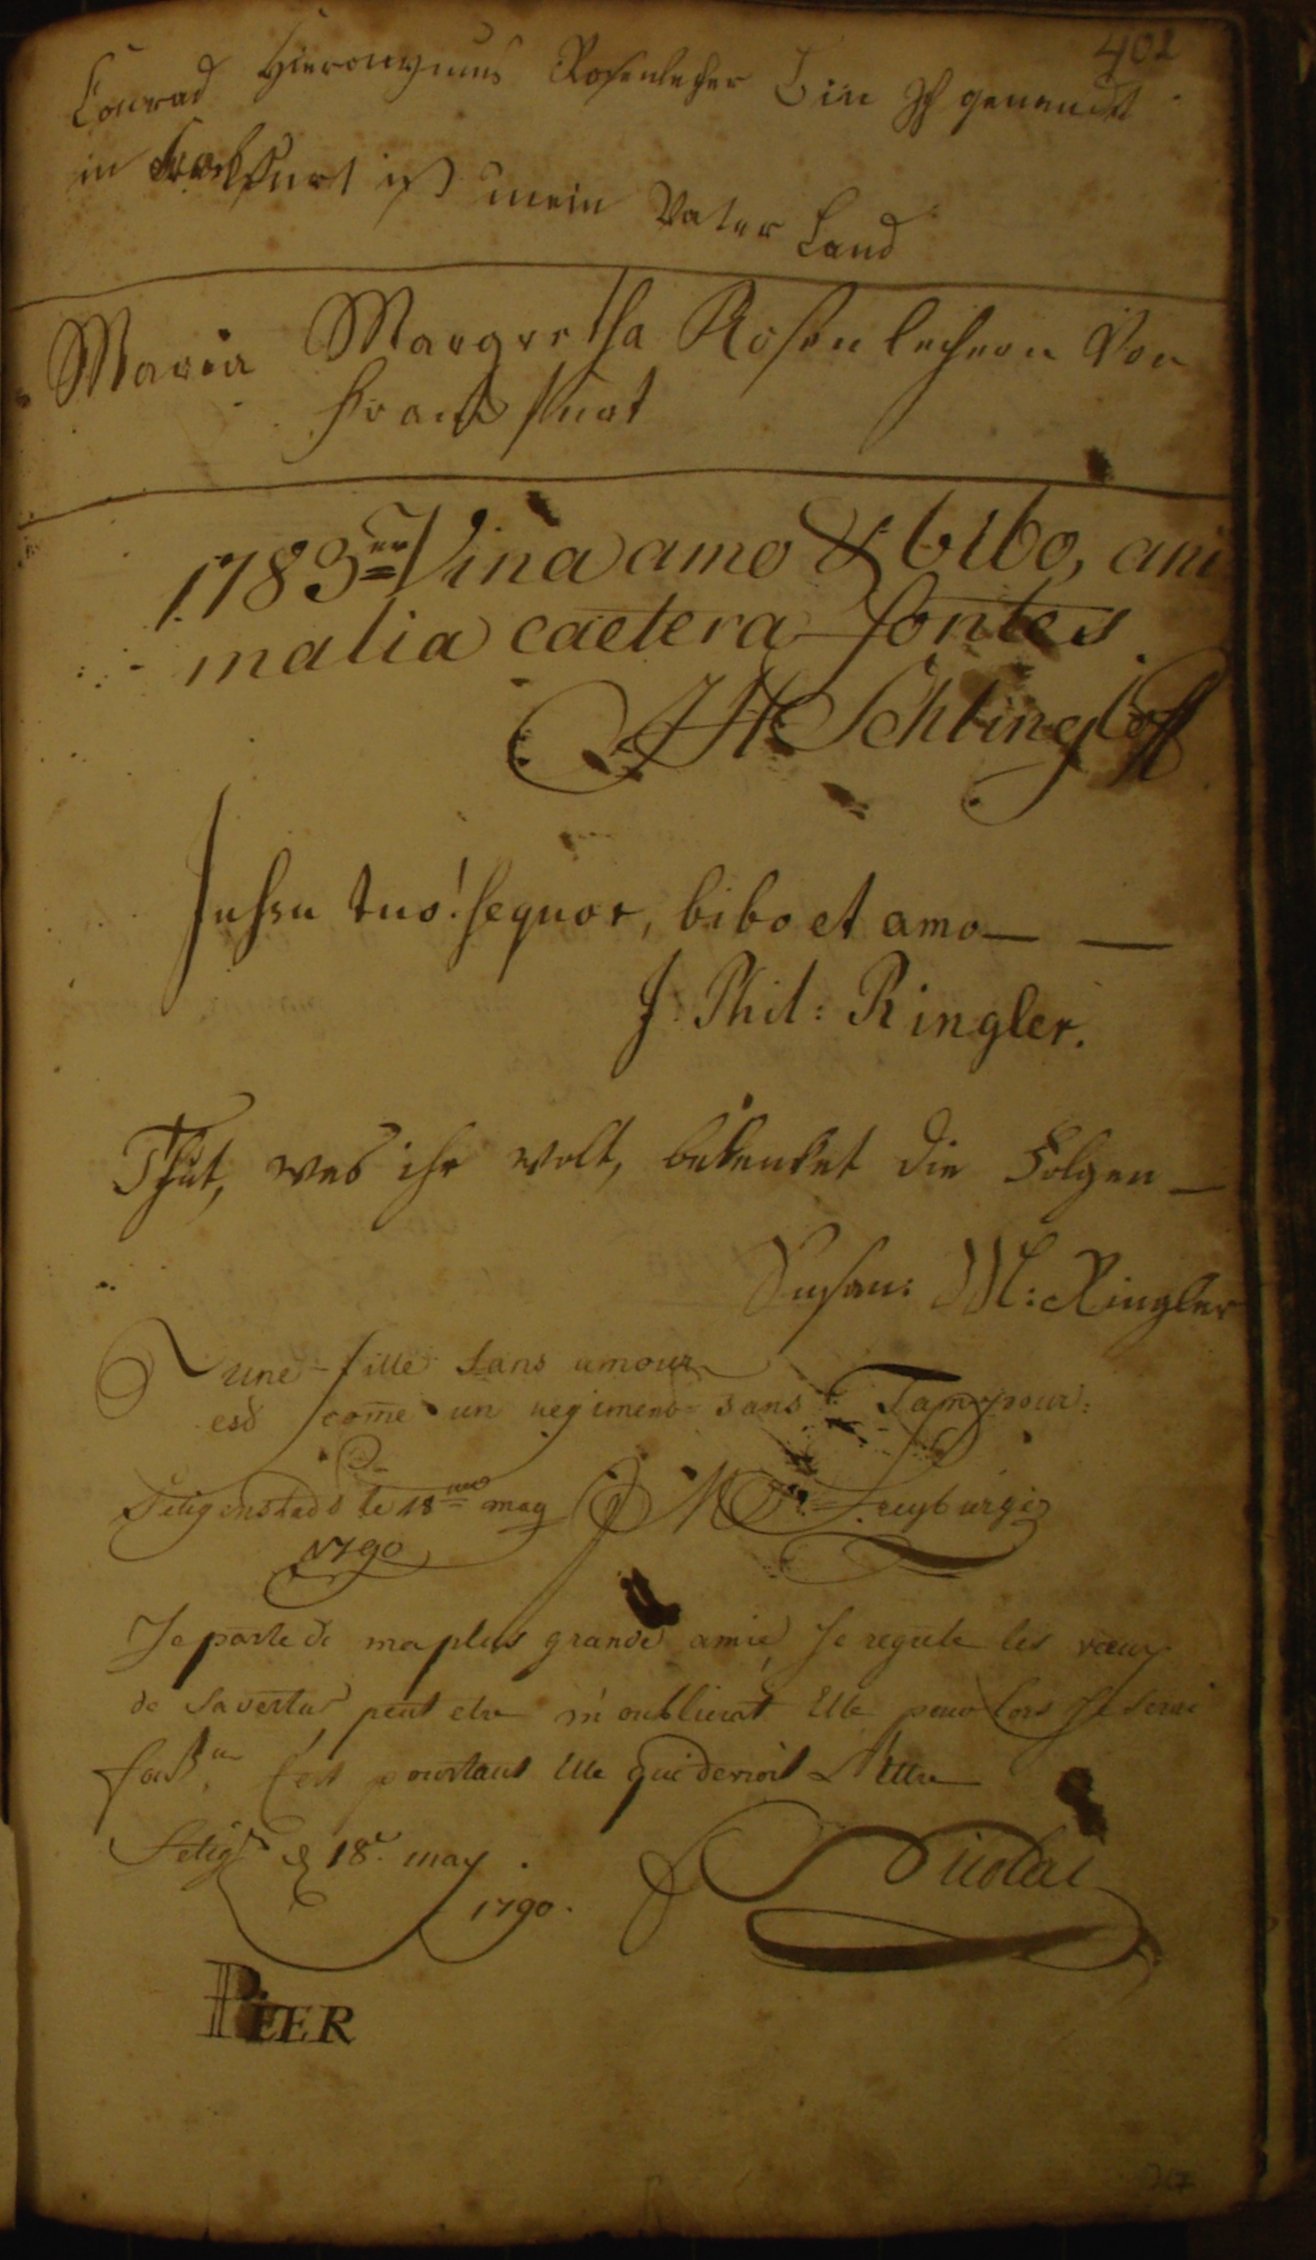 401
Conrad Hieronymus Rosenlecher Bin Ich genendt
in Franckfurt ist mein Vater Land
Maria Margretha Rosenlechern Von
Franckfurt
1783er Vina amo & bibo, ani
malia caetera fontes
Jussu tuo! sequor, bibo et amo — —
J. Phil: Ringler.
Thut, was ihr wolt, bedenket die Folgen —
Susan: M: Ringler
une fille sans amour
est come un regiment sans Tambour:
le 18me may
1790
Je parle de ma plus grande amie, Je les vœux
de sa vertu peut etre m'oublierat Elle pour lors Je serai
C'est pourtant Elle qui devroit L'Etre
18e may
1790.
Nicolai
PEER